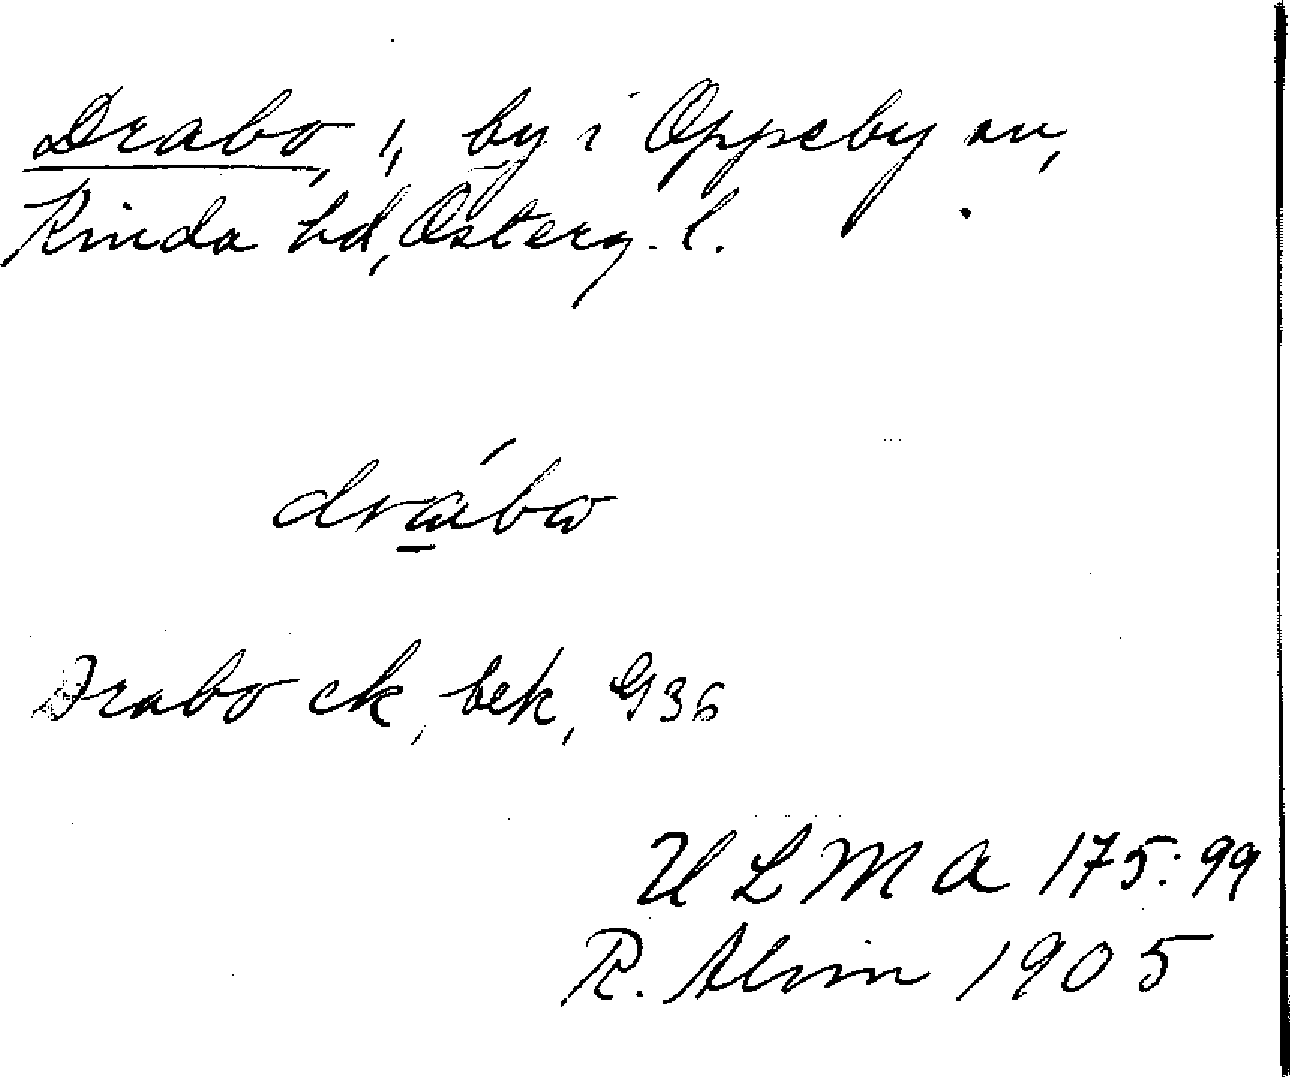 Drabo, !, by i Oppeby sn,
Kinda hd, Österg. l.
drábω
Drabo ek, bek, G36
ULMA 175:99
R. Alvin 1905